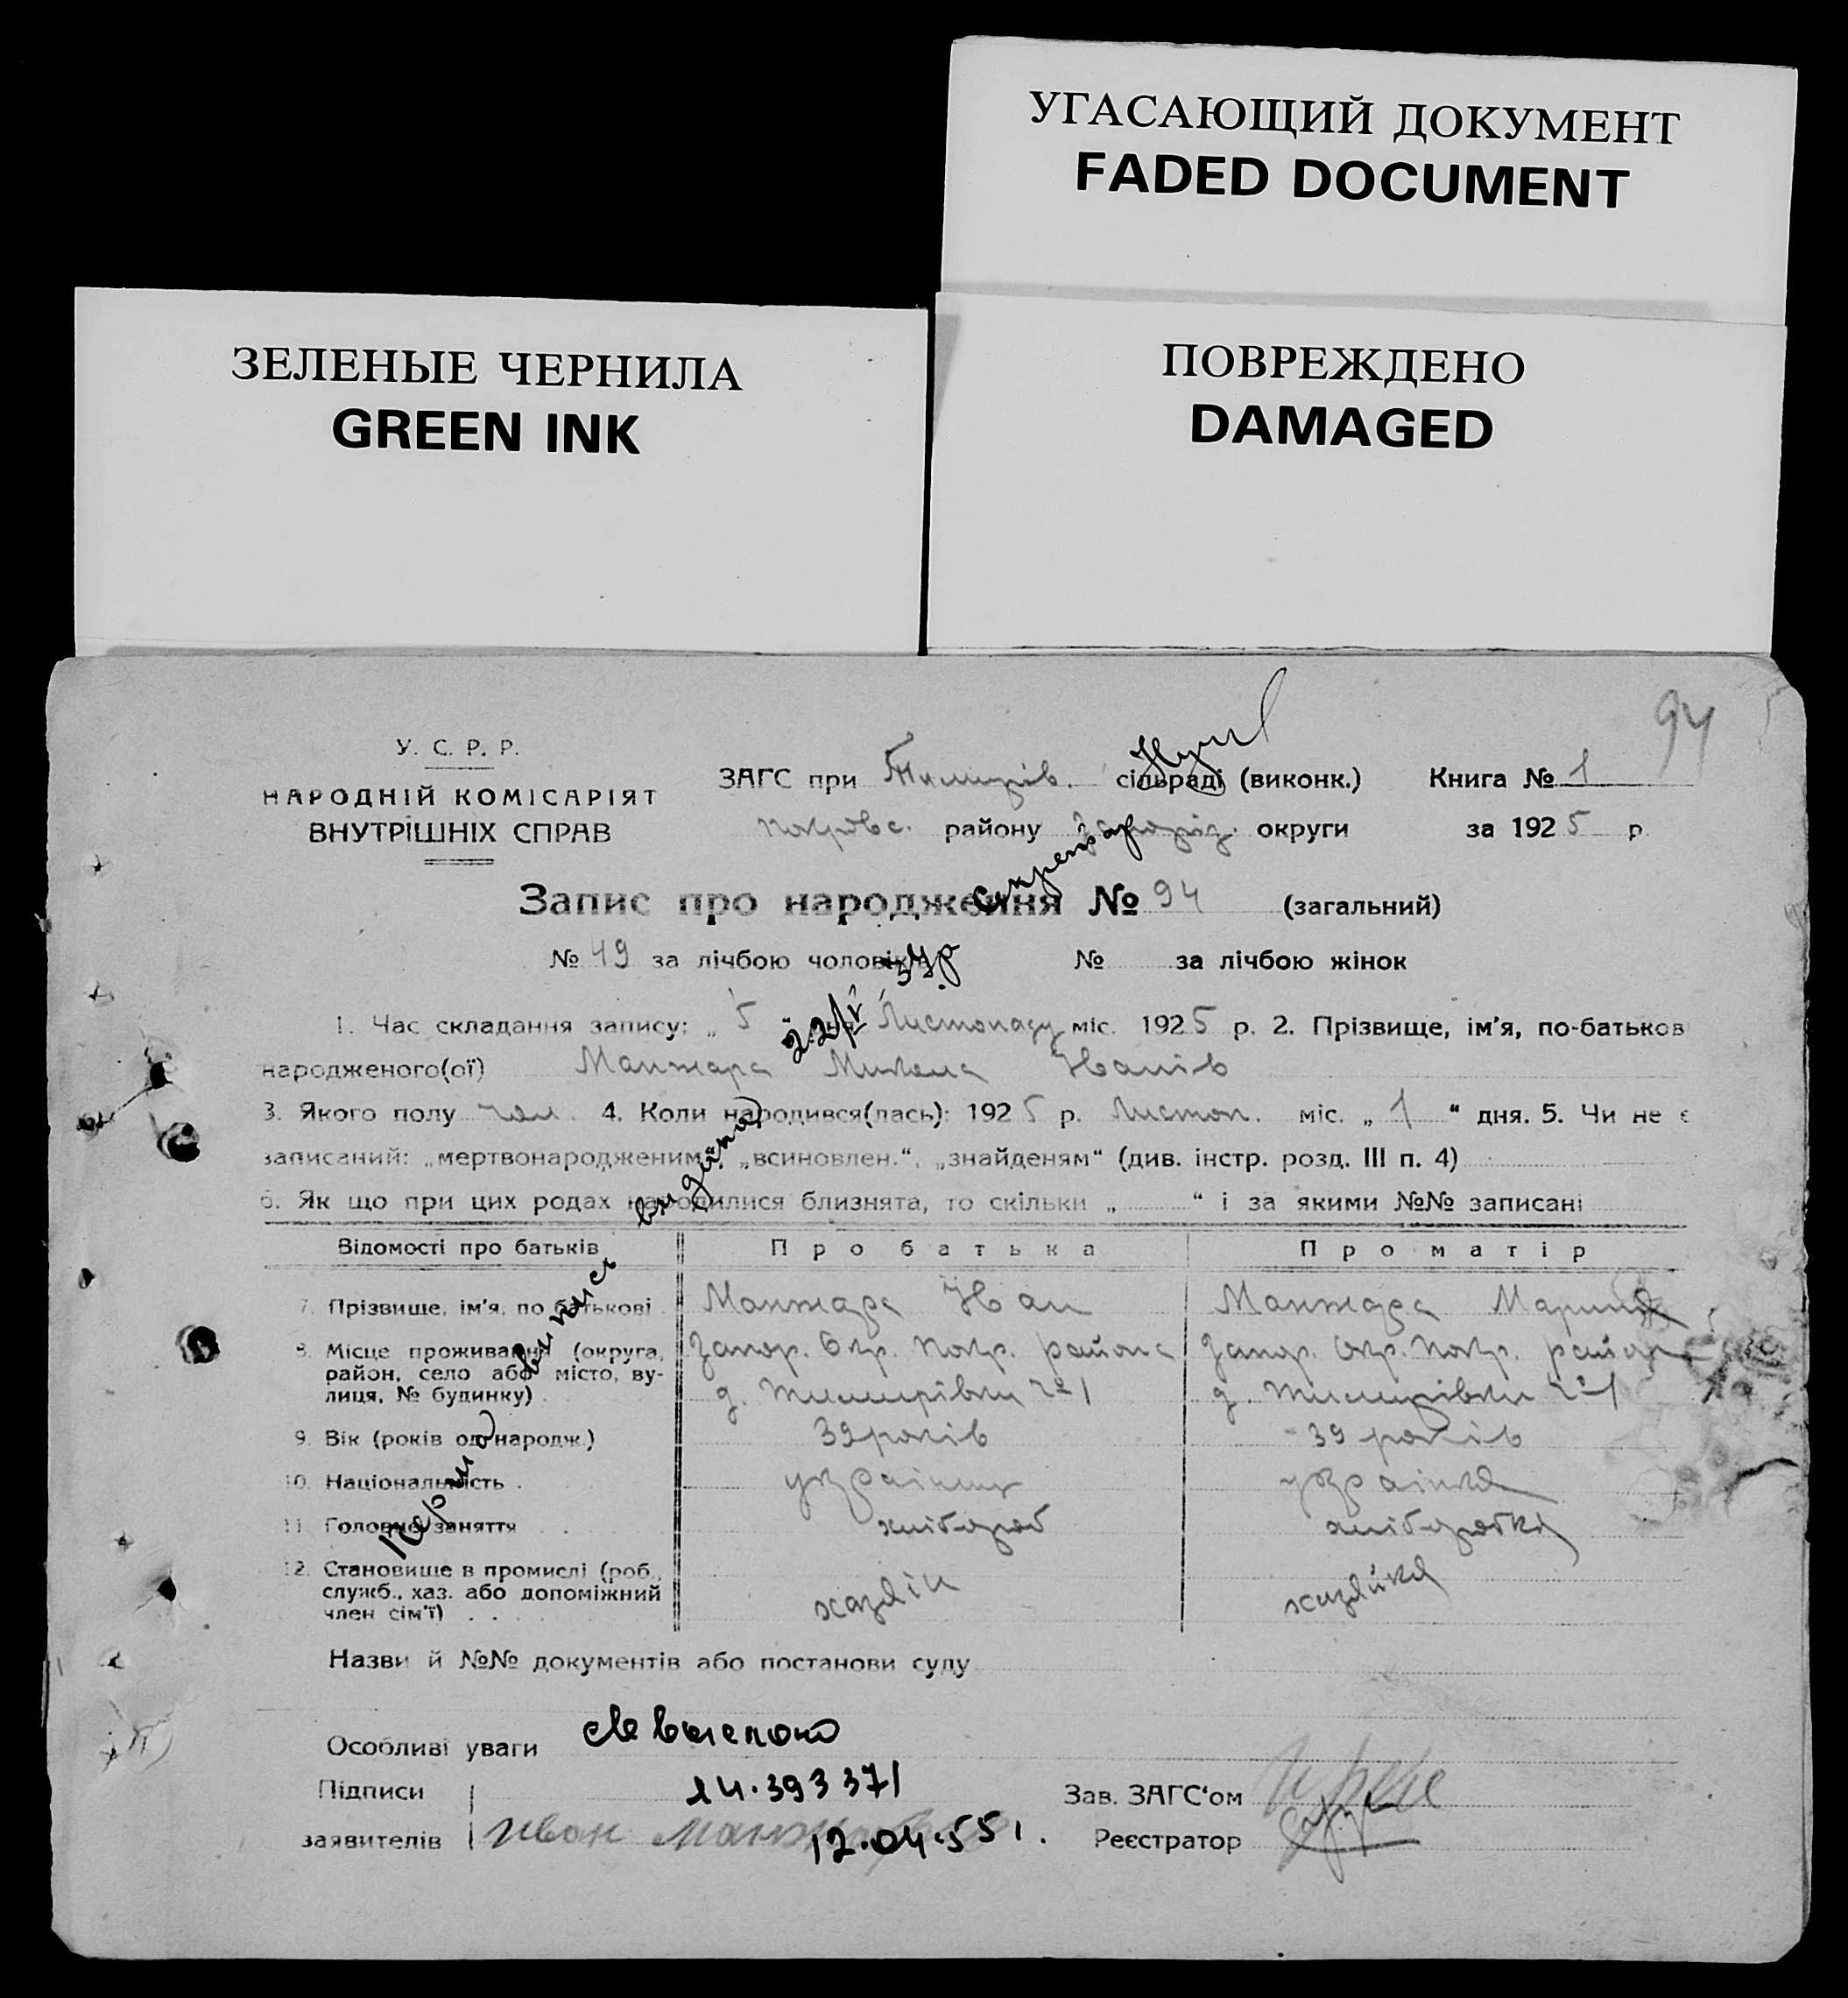 УГАСАЮЩИЙ ДОКУМЕНТ
FADED DOCUMENT
ЗЕЛЕНЫЕ ЧЕРНИЛА
GREEN INK
ПОВРЕЖДЕНО
DAMAGED
94
У. С. Р. Р.
НАРОДНІЙ КОМІСАРІЯТ
ВНУТРІШНІХ СПРАВ
ЗАГС при сільраді (виконк.) Книга № 1
покровс. району Запоріз. округи за 1925 р
Запис про народження № 94 (загальний)
№ 49 за лічбою чоловіків № за лічбою жінок
1. Час складання запису: „ 5 “ Листопаду міс. 1925 р. 2. Прізвище, ім'я, по-батьков
народженого(ої) Манжара Микола Іванів
3. Якого полу чол. 4. Коли народився(лась): 1925 р. Листоп. міс. „ 1 “ дня. 5. Чи не є
записаний: „мертвонародженим“, „всиновлен.“, „знайденям“ (див. інстр. розд. III п. 4)
6. Як що при цих родах народилися близнята, то скільки „ “ і за якими №№ записані
Відомості про батьків Про батька Про матір
7. Прізвище, ім'я, по батькові Манжара Іван Манжара Мария
8. Місце проживання (округа, Запор. Окр. Покр. района Запор. Окр. Покр. район
район, село або місто, ву-
лиця, № будинку) д. Тимирівки №1 д. Тимирівки №1
9. Вік (років од народж.) 39 років 39 років
10. Національність українець українка
11. Головне заняття хлібороб хліборобка
12. Становище в промислі (роб.,
служб., хаз. або допоміжний хазяїн хазяйка
член сім'ї)
Назви й №№ документів або постанови суду
Особливі уваги
Підписи 393371 Зав. ЗАГС'ом
заявителів Иван Манжара 12.04.55 г. Реєстратор
видана
22/IV 54р
Секретар